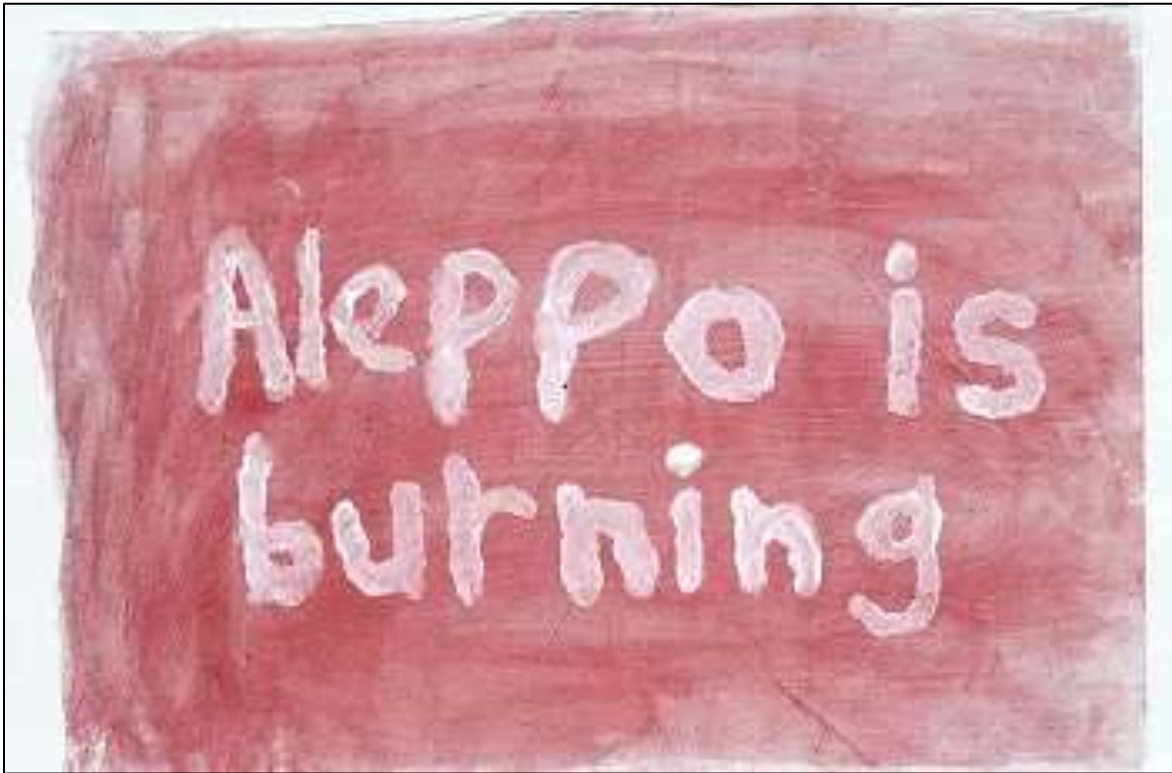 Aleppo is
burning